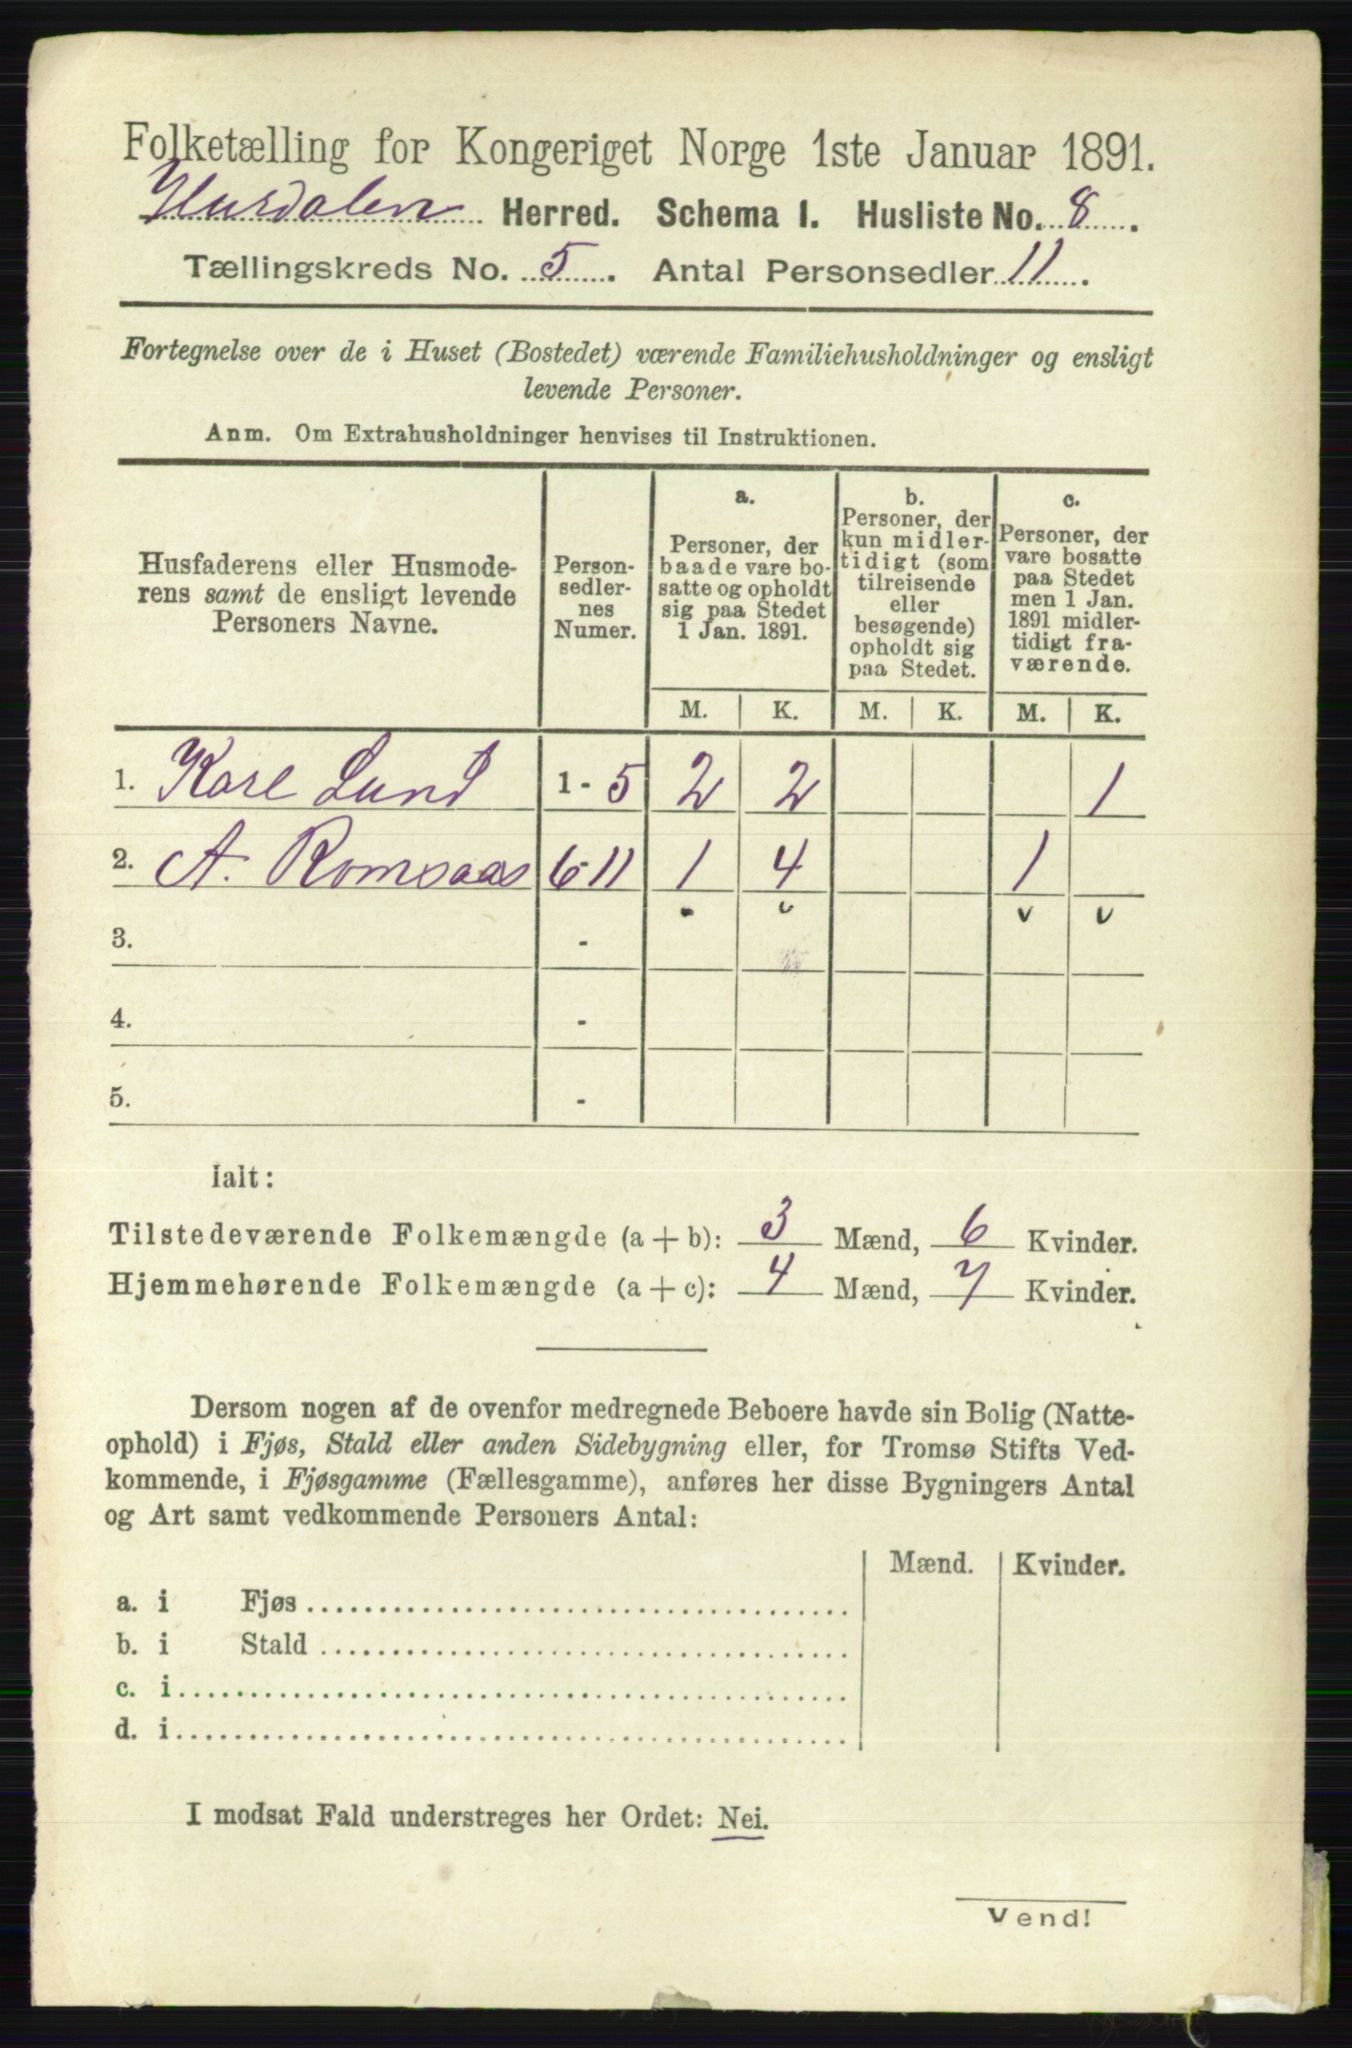 Folketælling for Kongeriget Norge 1ste Januar 1891.
Hurdalen Herred. Schema I. Husliste No. 8.
Tællingskreds No. 5. Antal Personsedler 11.
Fortegnelse over de i Huset (Bostedet) værende Familiehusholdninger og ensligt
levende Personer.
Anm. Om Extrahusholdninger henvises til Instruktionen.
Husfaderens eller Husmode-
rens samt de ensligt levende
Personers Navne.
Person-
sedler-
nes
Numer.
a.
Personer, der
baade vare bo-
satte og opholdt
sig paa Stedet
1 Jan. 1891.
b.
Personer, der
kun midler-
tidigt (som
tilreisende
eller
besøgende)
opholdt sig
paa Stedet.
c.
Personer, der
vare bosatte
paa Stedet
men 1 Jan.
1891 midler-
tidigt fra-
værende.
M. K. M. K. M. K.
1. Karl Lund 1-5 2 2 1
2. A. Romsaas 6-11 1 4 1
3. -
4. -
5. -
Ialt:
Tilstedeværende Folkemængde (a + b): 3 Mænd, 6 Kvinder.
Hjemmehørende Folkemængde (a + c): 4 Mænd, 7 Kvinder.
Dersom nogen af de ovenfor medregnede Beboere havde sin Bolig (Natte-
ophold) i Fjøs, Stald eller anden Sidebygning eller, for Tromsø Stifts Ved-
kommende, i Fjøsgamme (Fællesgamme), anføres her disse Bygningers Antal
og Art samt vedkommende Personers Antal:
Mænd. Kvinder.
a. i Fjøs
b. i Stald
c. i
d. i
I modsat Fald understreges her Ordet: Nei.
Vend!